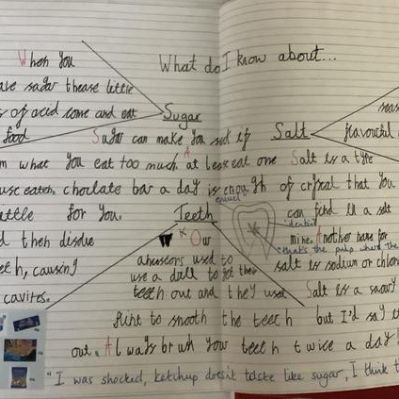 When you
What do I know about...
have sugar thease little
s of acid come and eat
Sugar
food
Sugar can make you sick if
Salt
flavourful
m what you eat too much. At least eat one
Salt is a type
use eateh, choclate bar a day is enough
of crystal that you
attle for you.
Teeth
enamel
can find in a salt
dentine
d then disolve
Our
mine. Another name for
that's the pulp where the
eeth, causing
ancesors used to
salt is sodium or chlor
use a drill to get their
cavites.
teeth out and they used
Salt is a
flint to smooth the teeth
but I'd say
out. Always brush your teeth twice a day!
"I was shocked, ketchup doesn't taste like sugar, I think t